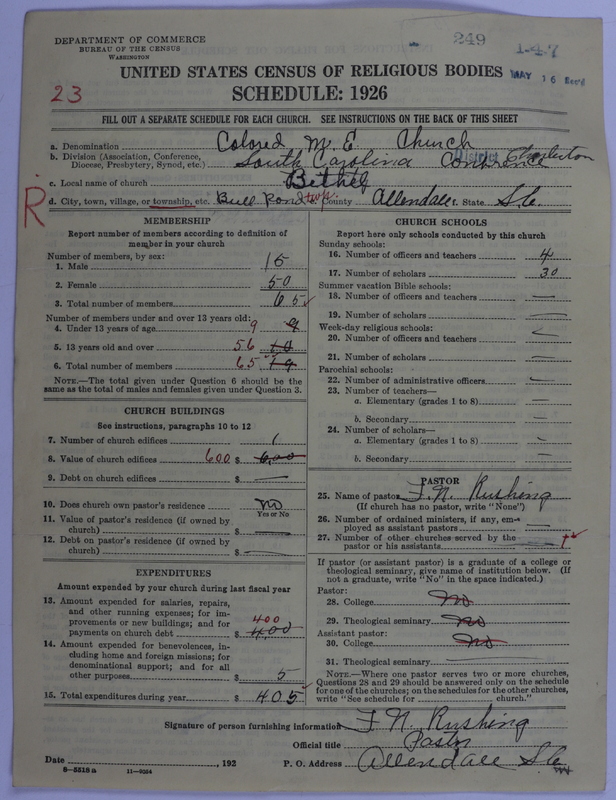 249
147
MAY 16 Rec'd
DEPARTMENT OF COMMERCE
BUREAU OF THE CENSUS
WASHINGTON
UNITED STATES CENSUS OF RELIGIOUS BODIES
23
SCHEDULE: 1926
FILL OUT A SEPARATE SCHEDULE FOR EACH CHURCH. SEE INSTRUCTIONS ON THE BACK OF THIS SHEET
a. Denomination Colored M. E. Church
b. Division (Association, Conference, Diocese, Presbytery, Synod, etc.) South Carolina Conference District Charleston
c. Local name of church Bethel
R
d. City, town, village, or township, etc. Bull Pond twp County Allendale f. State S.C.
MEMBERSHIP
Report number of members according to definition of
member in your church
Number of members, by sex:
1. Male 15
2. Female 50
3. Total number of members 65
Number of members under and over 13 years old:
4. Under 13 years of age 9 9
5. 13 years old and over 56 10
6. Total number of members 65 19
NOTE.—The total given under Question 6 should be
same as the total of males and females given under Question 3.
CHURCH BUILDINGS
See instructions, paragraphs 10 to 12
7. Number of church edifices 1
8. Value of church edifices 600 $ 6,00
9. Debt on church edifices $ —
10. Does church own pastor's residence No
Yes or No
11. Value of pastor's residence (if owned by
church) $ —
12. Debt on pastor's residence (if owned by
church) $ —
EXPENDITURES
Amount expended by your church during last fiscal year
13. Amount expended for salaries, repairs,
and other running expenses; for im-
provements or new buildings; and for 400
payments on church debt $ 4,00
14. Amount expended for benevolences, in-
cluding home and foreign missions; for
denominational support; and for all
other purposes $ 5
15. Total expenditures during year $ 405
CHURCH SCHOOLS
Report here only schools conducted by this church
Sunday schools:
16. Number of officers and teachers 4
17. Number of scholars 30
Summer vacation Bible schools:
18. Number of officers and teachers —
19. Number of scholars —
Week-day religious schools:
20. Number of officers and teachers —
21. Number of scholars —
Parochial schools:
22. Number of administrative officers —
23. Number of teachers—
a. Elementary (grades 1 to 8) —
b. Secondary —
24. Number of scholars—
a. Elementary (grades 1 to 8) —
b. Secondary —
PASTOR
25. Name of pastor J. N. Rushing
(If church has no pastor, write "None")
26. Number of ordained ministers, if any, em-
ployed as assistant pastors —
27. Number of other churches served by the
pastor or his assistants —
If pastor (or assistant pastor) is a graduate of a college or
theological seminary, give name of institution below. (If
not a graduate, write "No" in the space indicated.)
Pastor:
28. College No
29. Theological seminary No
Assistant pastor:
30. College No
31. Theological seminary —
NOTE.—Where one pastor serves two or more churches,
Questions 28 and 29 should be answered only on the schedule
for one of the churches; on the schedules for the other churches,
write "See schedule for ______ church."
Signature of person furnishing information J. N. Rushing
Official title Pastor
Date ______, 192 P. O. Address Allendale S.C.
8—5518 a 11—9354